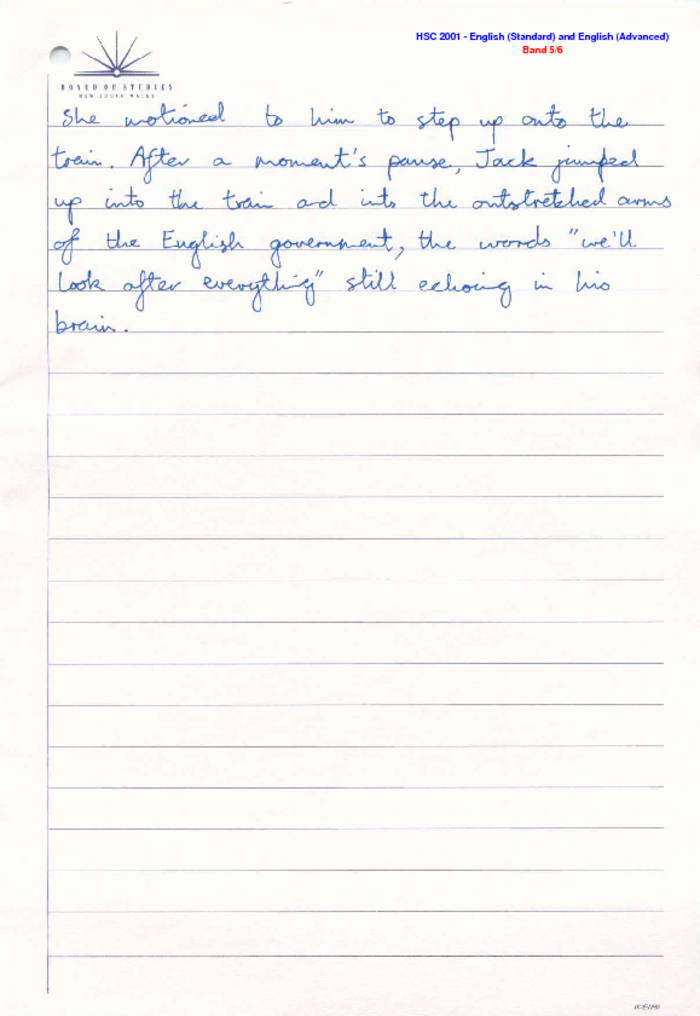 HSC 2001 - English (Standard) and English (Advanced)
Band 5/6
BOARD OF STUDIES
NEW SOUTH WALES
She motioned to him to step up onto the
train. After a moment's pause, Jack jumped
up into the train ad into the outstretched arms
of the English government, the words "we'll
look after everything" still echoing in his
brain.